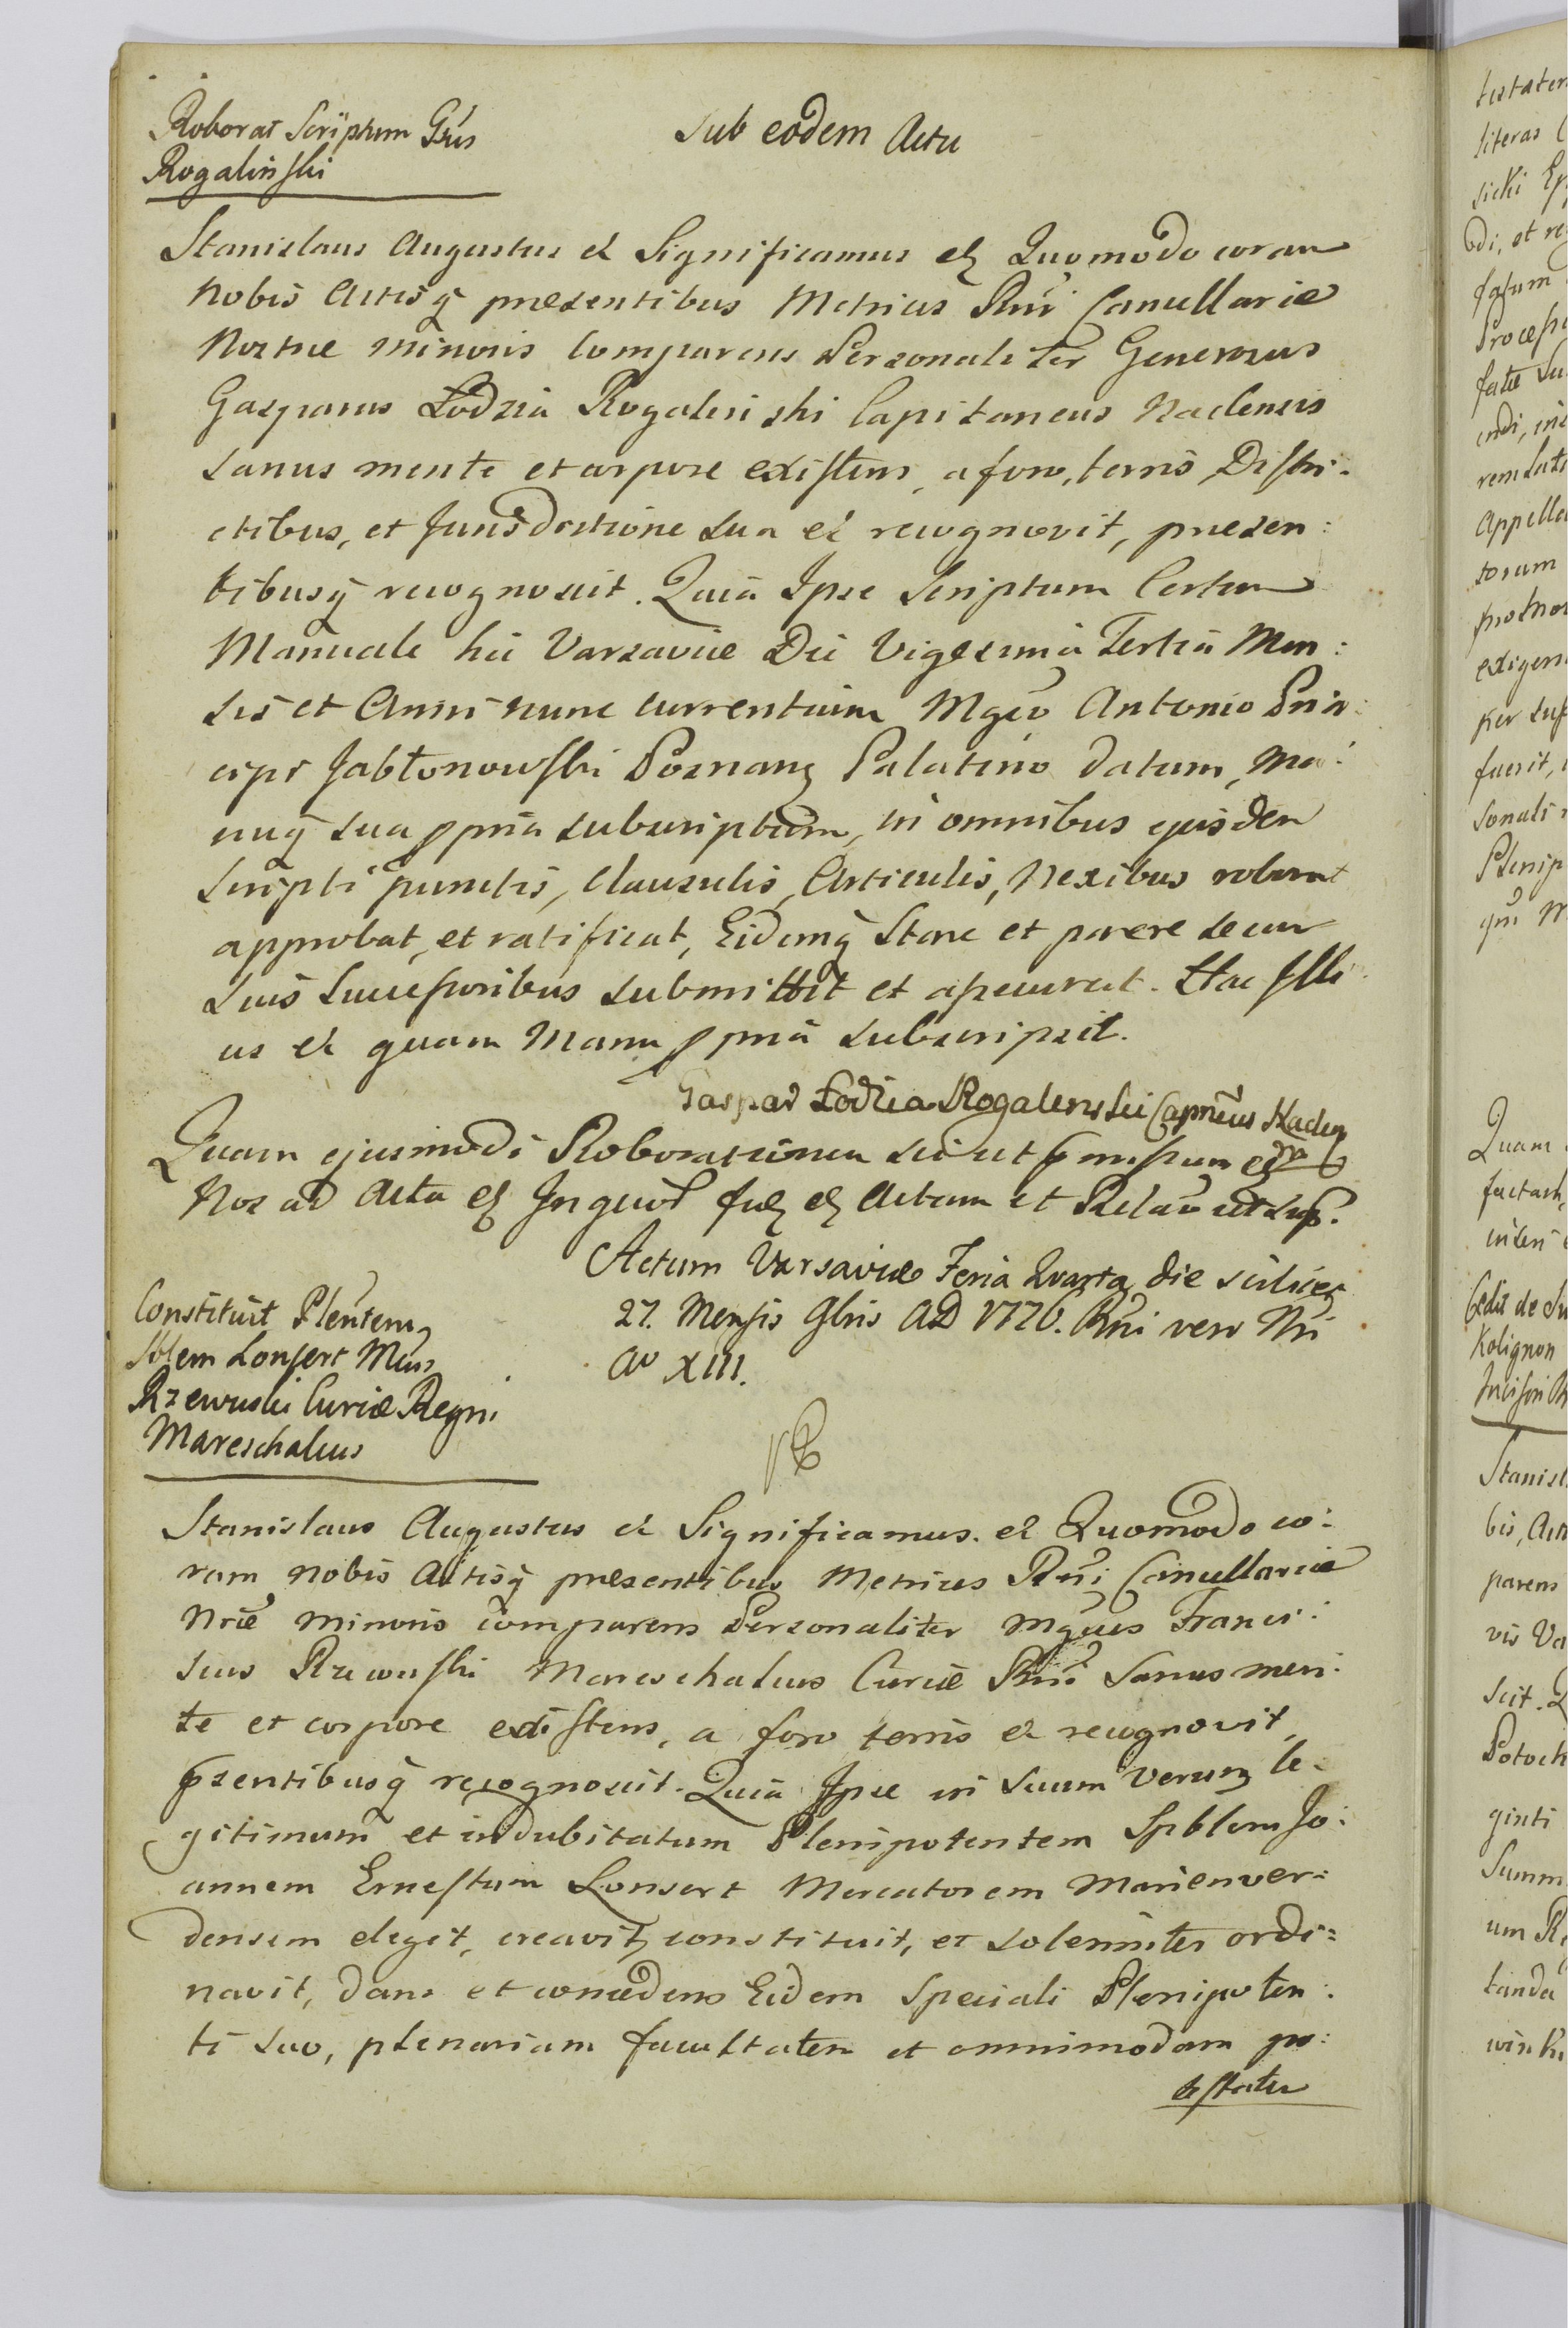 Roborat Scriptum Gsus
Rogalinski
Sub eodem Actu
Stanislaus Augustus et Significamus etz Quomodo coram
Nobis Actisq presentibus Metrices Rni Cancellariæ
Nostræ minoris Comparens Personaliter Generosus
Gasparus Łodzia Rogalinski Capitaneus Naclensis
Sanus mente et corpore existens, a foro, terris Distri:
ctibus, et Jurisdictione sua et recognovit, præsen:
tibusq recognoscit. Quia Ipse Scriptum Certum
Manuale hic Varsaviæ Die Vigesima Tertia Men:
sis et Anni nunc currentium Mgco Antonio Prin:
cipi Jabłonowski Poznanz Palatino datum, Ma:
nuq sua ppria subscriptum, in omnibus ejusdem
Scripti punctis, Clausulis, Articulis, Nexibus roborat
approbat, et ratificat, Eidemq Stare et parere secum
Suis Successoribus submittit et assecurat. Hac Ille
us et quam Manu ppria subscripsit.
Gaspar Łodzia Rogalenski Capneus Naclen
Quam ejusmodi Roborationem sicut pmissum
Nos ad Acta etz Inquor fidz etz Actum et Relaō ut sup.
Actum Varsaviæ Feria Quarta die scilicet
27. Mensis 9bris AD 1776. Rni vero Nri
Ao XIII.
Constituit Plentem
Sblem Lonsert Mcus
Rzewuski Curiæ Regni
Mareschalcus
Stanislaus Augustus et Significamus. et Quomodo co:
ram Nobis Actisq præsentibus Metrices Rni Cancellariæ
Nræ Minoris comparens Personaliter Mgcus Franci:
scus Rzewuski Mareschalcus Curiæ Rni Sanus men:
te et corpore existens, a foro terris et recognovit,
pzentibusq recognoscit. Quia Ipse in Suum Verum le:
gitimum et indubitatum Plenipotentem Spblem Jo:
annem Ernestum Lonsert Mercatorem Marienver:
densem elegit, creavit, constituit, et solenniter ordi:
navit, dans et concedens Eidem Speciali Plenipoten:
ti suo, plenariam facultatem et omnimodam po:
testatem
testatem
literas
sicki Ep
di, et re
fatum
Process
fatæ Su
endi, ini
rem
Appella
torum
pro Nos
exigen
per Sup
fuerit,
sonali
Plenip
qui M
Quam
factam,
inseri
Cedit de Su
Kolignon
Stanisl
bis, Act
parens
vis Va
scit. Q
Potock
ginti
Summ
um R
tanda